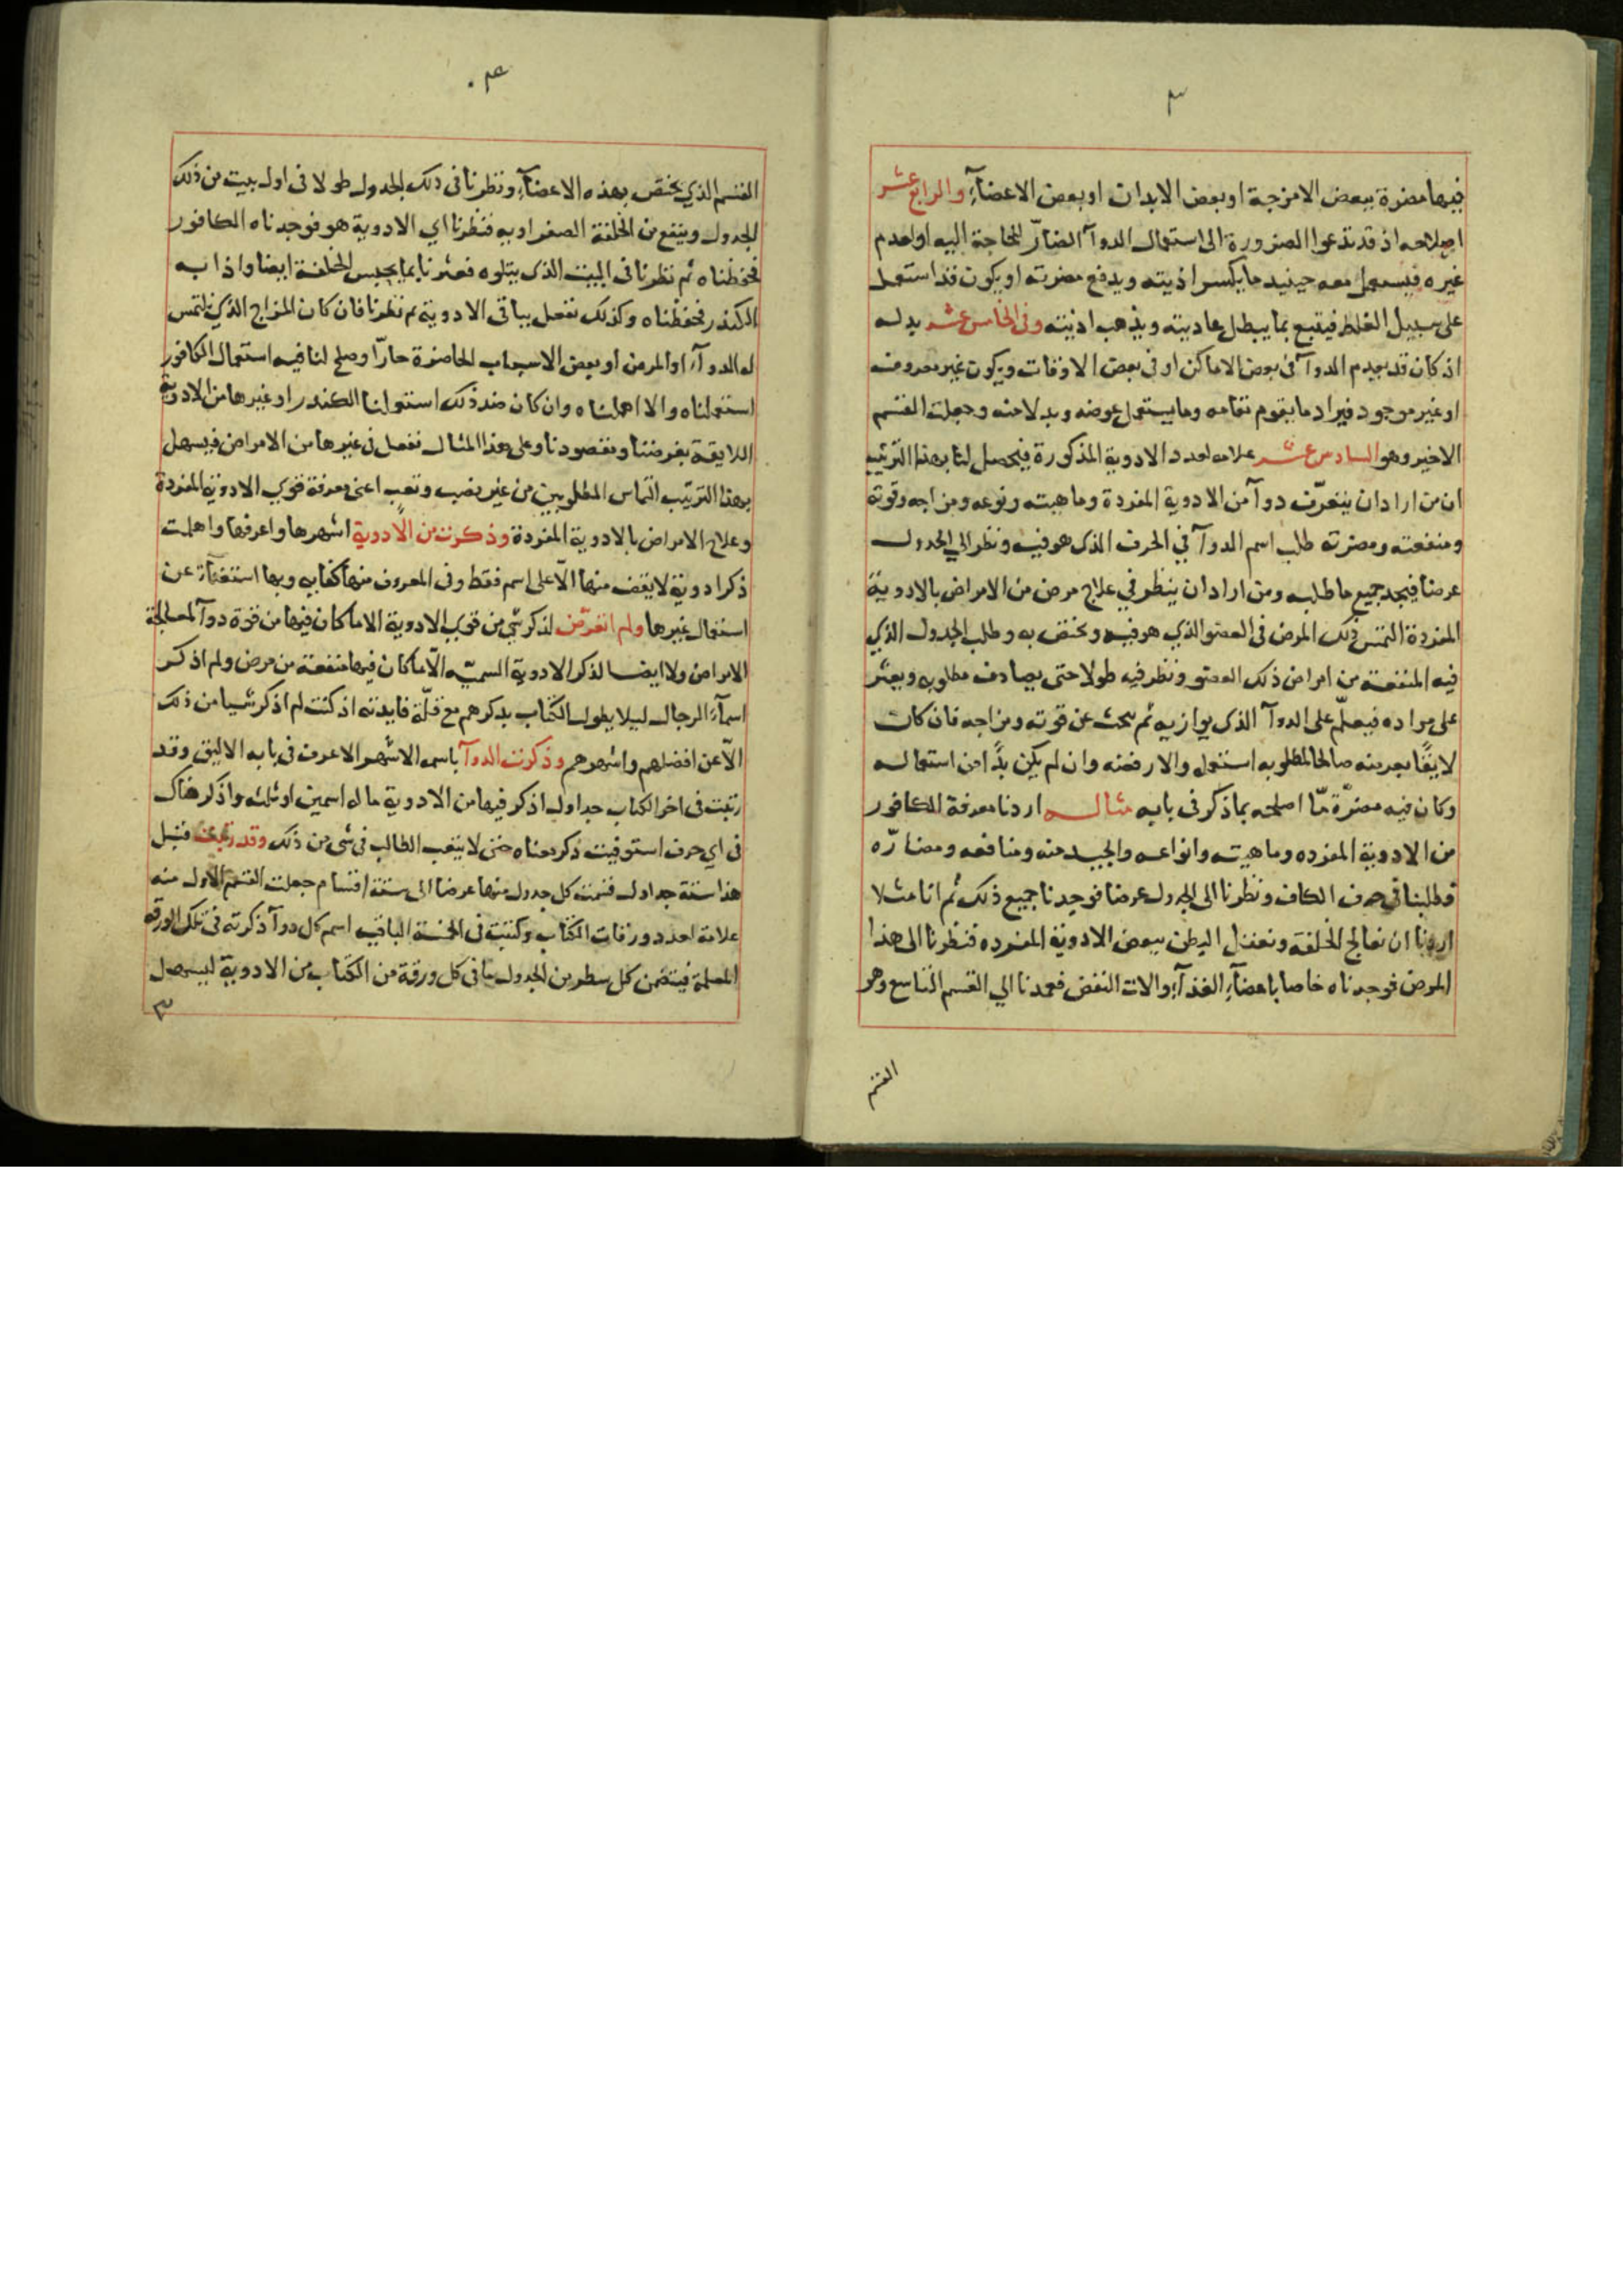 ٣
فيها مضرة ببعض الامزجة او بعض الابدان او بعض الاعضآء والرابع عشر
اصلاحه اذ قد تدعوا الضرورة الى استعمال الدوآ الضارّ للحاجة اليه او لعدم
غيره فيستعمل معه حينيد ما يكسر اذيته ويدفع مضرته او يكون قد استعمل
على سبيل الغلط فيتبع بما يبطل عاديته ويذهب اذيته وفى الخامس عشر بدله
اذ كان قد يعدم الدوآ فى بعض الاماكن او فى بعض الاوقات ويكون غير معروف
او غير موجود فيراد ما يقوم مقامه وما يستعمل عوضه وبدلا منه وجعلت القسم
الاخير وهو السادس عشر علامه لعدد الادوية المذكورة فيحصل لنا بهذا الترتيب
ان من اراد ان يتعرّف دوآ من الادوية المفردة وماهيته ونوعه ومزاجه وقوته
ومنفعته ومضرته طلب اسم الدوآ في الحرف الذى هو فيه ونظر الي الجدول
عرضا فيجد جميع ما طلبه ومن اراد ان ينظر في علاج مرض من الامراض بالادوية
المفردة التمس ذلك المرض فى العضو الذي هو فيه ويختص به وطلب الجدول الذي
فيه المنفعة من امراض ذلك العضو ونظر فيه طولا حتى يصادف مطلوبه ويعثر
على مراده فيعلّم على الدوآ الذى يوازيه ثم يبحث عن قوته ومزاجه فان كان
لايقًا بغرضه صالحا لمطلوبه استعمله والا رفضه وان لم يكن بدًّا من استعماله
وكان فيه مضرّة مّا اصلحه بما ذكر فى بابه مثاله اردنا معرفة الكافور
من الادوية المفرده وماهيته وانواعه والجيد منه ومنافعه ومضارّه
فطلبنا في حرف الكاف ونظرنا الى الجدول عرضا فوجدنا جميع ذلك ثم انا مثلا
اردنا ان نعالج الخلفة ونعقل البطن ببعض الادوية المفرده فنظرنا الى هذا
المرض فوجدناه خاصا باعضآء الغذآء والات النفض فعمدنا الي القسم التاسع وهو
القسم
٤
القسم الذي يختص بهذه الاعضآء ونظرنا فى ذلك الجدول طولا فى اول بيت من ذلك
الجدول وينفع من الخلفة الصفراويه فنظرنا اي الادوية هو فوجدناه الكافور
فحفظناه ثم نظرنا فى البيت الذى يتلوه فعثرنا بما يحبس الخلفة ايضا واذا به
الكندر فحفظناه وكذلك نفعل بباقى الادوية ثم نظرنا فان كان المزاج الذي نلتمس
له الدوآء او المرض او بعض الاسباب الحاضرة حارّا وصلح لنا فيه استعمال الكافور
استعملناه والا اهملناه وان كان ضد ذلك استعملنا الكندر او غيرها من الادوية
اللايقة بغرضنا ومقصودنا وعلى هذا المثال نفعل فى غيرها من الامراض فيسهل
بهذا الترتيب التماس المطلوبين من غير نصب وتعب اعنى معرفة قوي الادوية المفردة
وعلاج الامراض بالادوية المفردة وذكرت من الادوية اشهرها واعرفها واهملت
ذكر ادوية لا يقف منها الّا على اسم فقط وفى المعروف منها كفايه وبها استغنآء عن
استعمال غيرها ولم اتعرّض لذكر شي من قوي الادوية الا ما كان فيها من قوة دوآ لمعالجة
الامراض ولا ايضا لذكر الادوية السميّه الّا ما كان فيها منفعة من مرض ولم اذكر
اسمآء الرجال ليلا يطول الكتاب بذكرهم مع قلّة فايدته اذ كنت لم اذكر شيا من ذلك
الّا عن افضلهم واشهرهم وذكرت الدوآ باسمه الاشهر الاعرف فى بابه الاليق وقد
رتبت فى اخر الكتاب جداول اذكر فيها من الادوية ما له اسمين او ثلثه واذكر هناك
فى اي حرف استوفيت ذكر معناه حتى لا يتعب الطالب فى شى من ذلك وقد رتبت قبل
هذا ستة جداول قسمت كل جدول منها عرضا الى ستة اقسام جعلت القسم الاول منه
علامة لعدد ورقات الكتاب وكتبت فى الخمسة الباقيه اسم كل دوآ ذكرته فى تلك الورقه
المعلمة فيتضمن كل سطر من الجدول ما فى كل ورقة من الكتاب من الادوية ليسهل
٣